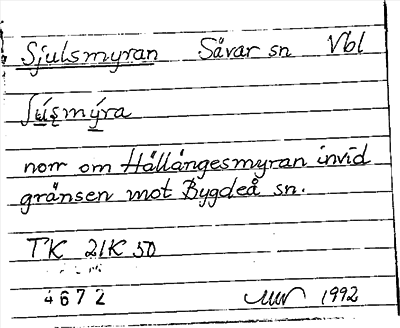 Sjulsmyran Sävar sn Vbl
norr om Hållängesmyran invid
gränsen mot Bygdeå sn.
TK 21K 50
4672 1992